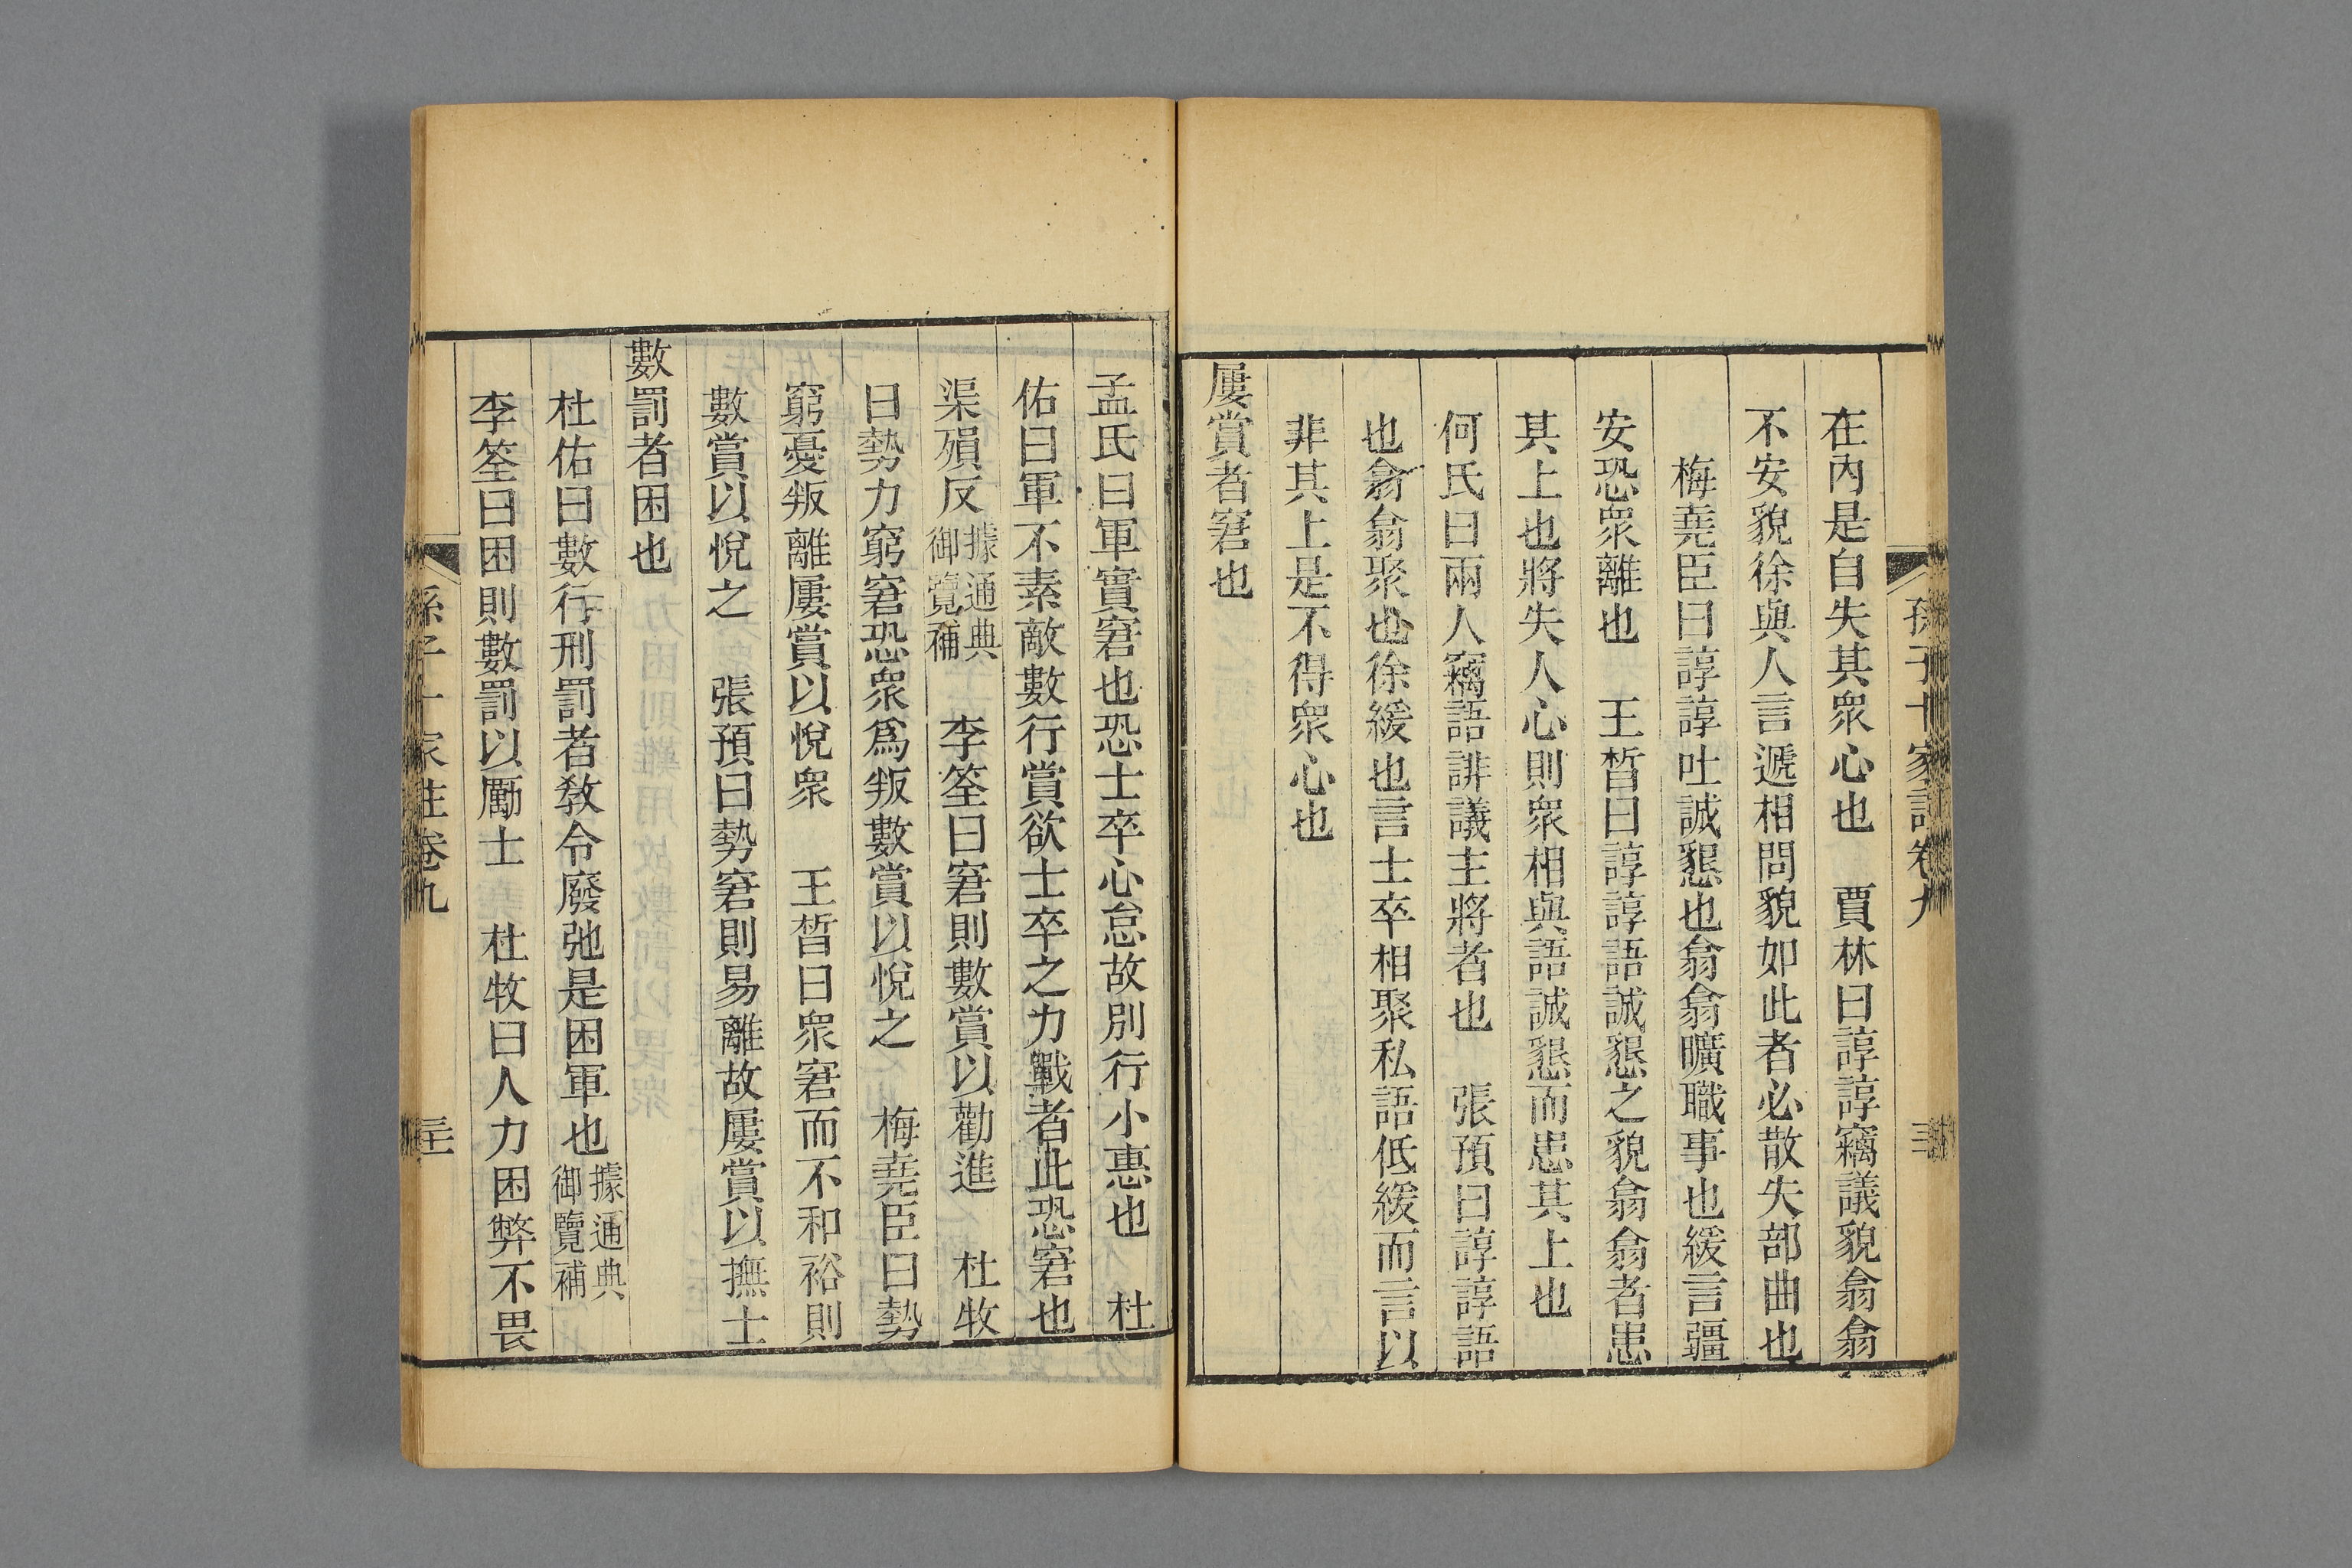 孫子十家註卷九
在內是自失其衆心也　賈林曰諄諄竊議貌翕翕
不安貌徐與人言遞相問貌如此者必散失部曲也
梅堯臣曰諄諄吐誠懇也翕翕曠職事也緩言彊
安恐衆離也　王晳曰諄諄語誠懇之貌翕翕者患
其上也將失人心則衆相與語誠懇而患其上也
何氏曰兩人竊語誹議主將者也　張預曰諄諄語
也翕翕聚也徐緩也言士卒相聚私語低緩而言以
非其上是不得衆心也
屢賞者窘也
孟氏曰軍實窘也恐士卒心怠故別行小惠也　杜
佑曰軍不素敵數行賞欲士卒之力戰者此恐窘也
渠殞反據通典御覽補　李筌曰窘則數賞以勸進　杜牧
曰勢力窮窘恐衆爲叛數賞以悅之　梅堯臣曰勢
窮憂叛離屢賞以悅衆　王晳曰衆窘而不和裕則
數賞以悅之　張預曰勢窘則易離故屢賞以撫士
數罰者困也
杜佑曰數行刑罰者敎令廢弛是困軍也據通典御覽補
李筌曰困則數罰以勵士　杜牧曰人力困弊不畏
孫子十家註卷九